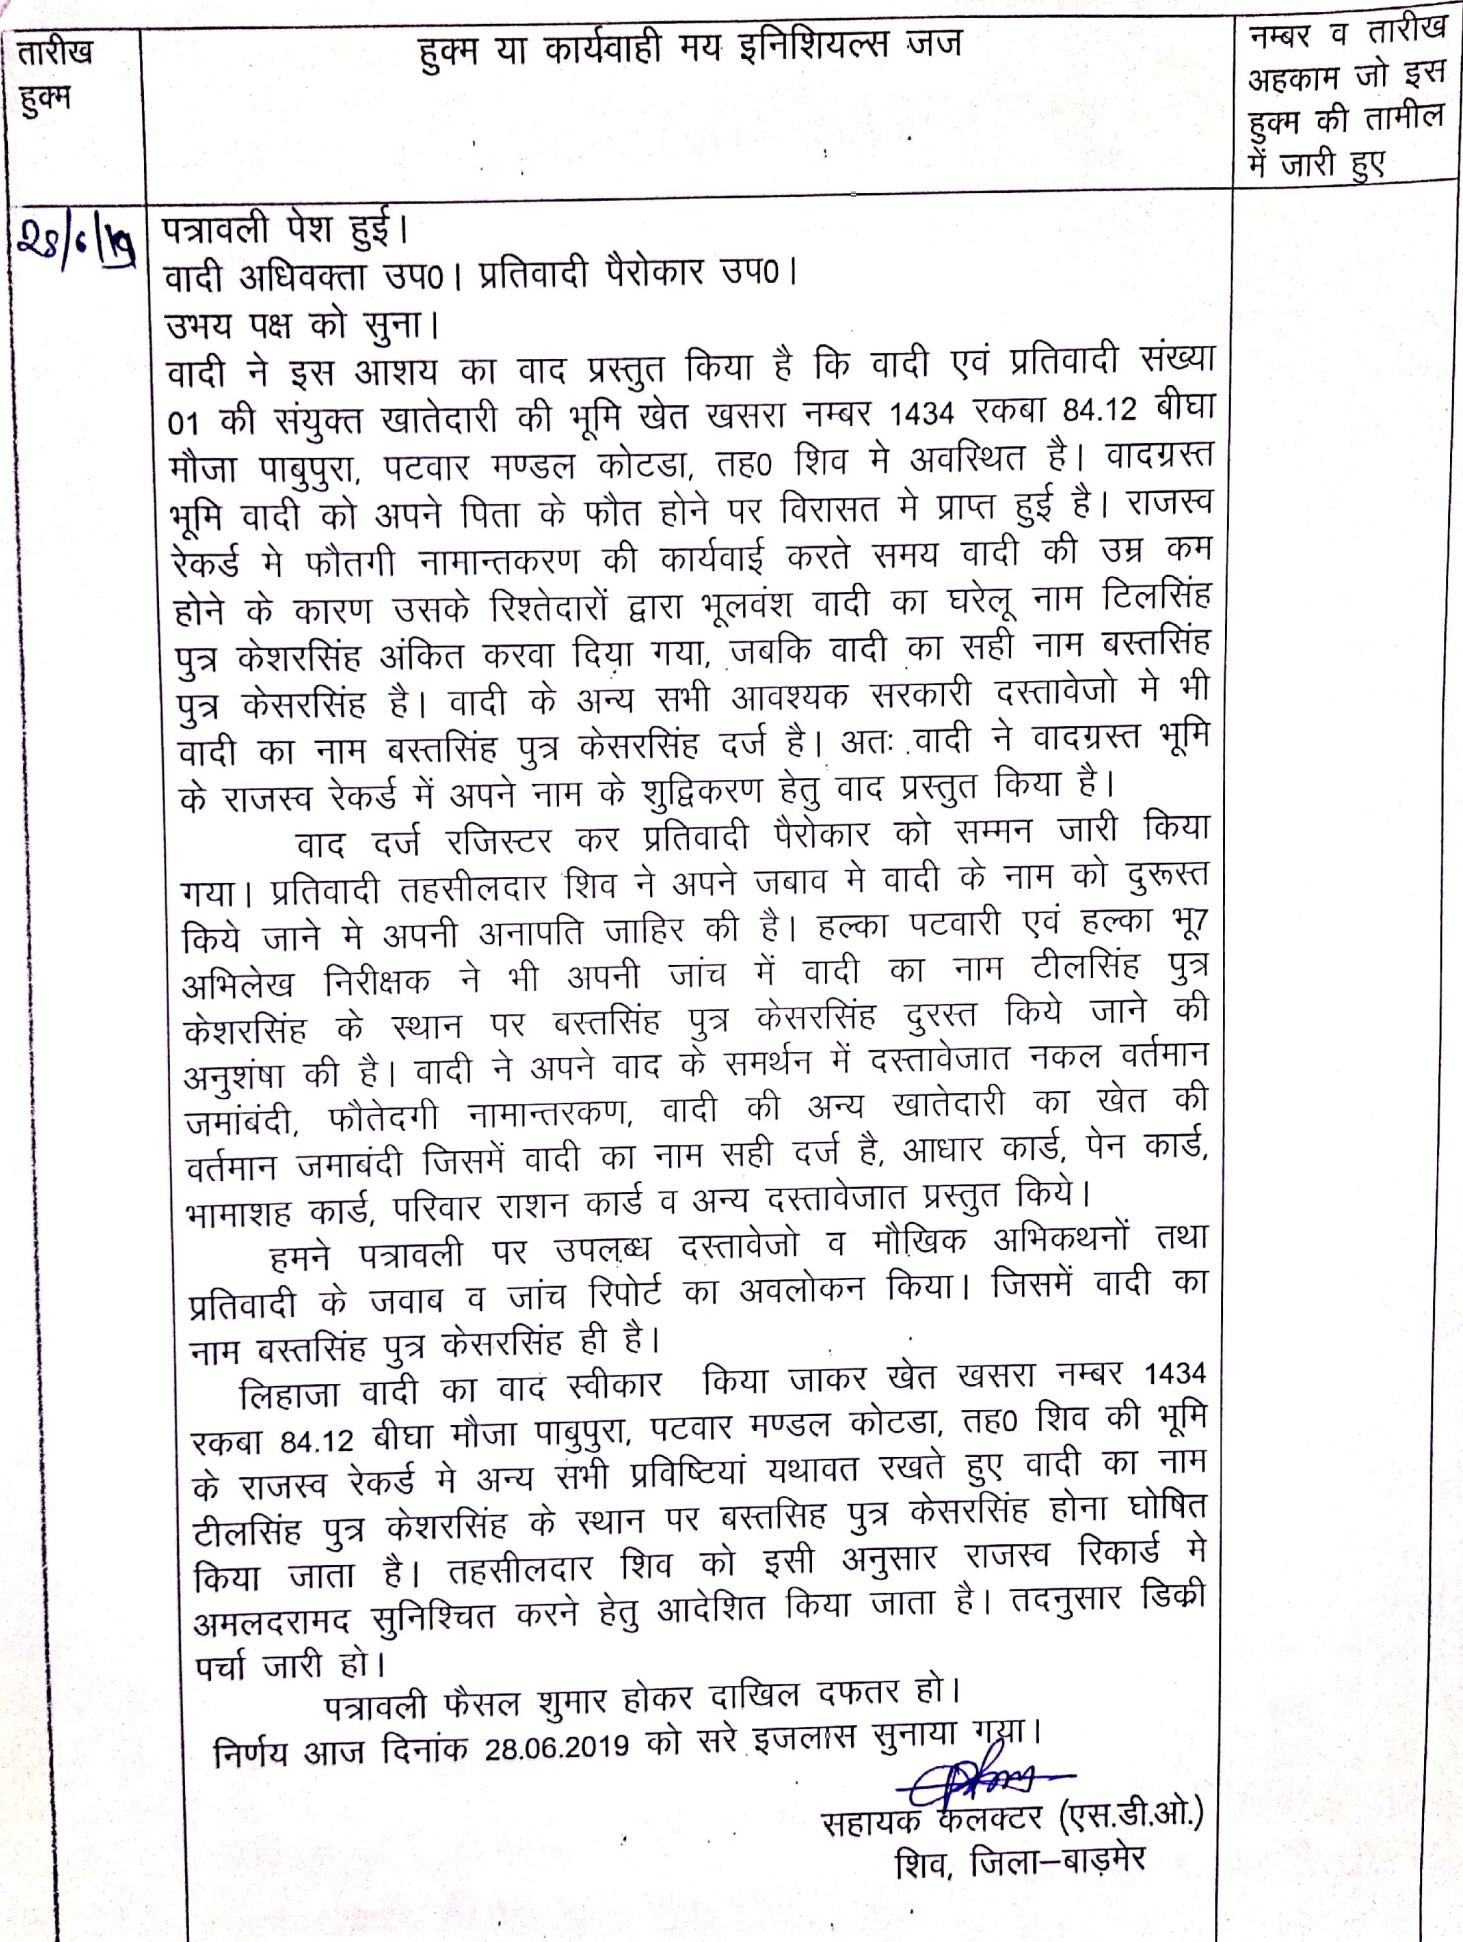 तारीख
हुक्म
हुक्म या कार्यवाही मय इनिशियल्स जज
नम्बर व तारीख
अहकाम जो इस
हुक्म की तामील
में जारी हुए
28/6/19
पत्रावली पेश हुई।
वादी अधिवक्ता उप0। प्रतिवादी पैरोकार उप0।
उभय पक्ष को सुना।
वादी ने इस आशय का वाद प्रस्तुत किया है कि वादी एवं प्रतिवादी संख्या
01 की संयुक्त खातेदारी की भूमि खेत खसरा नम्बर 1434 रकबा 84.12 बीघा
मौजा पाबुपुरा, पटवार मण्डल कोटडा, तह0 शिव मे अवस्थित है। वादग्रस्त
भूमि वादी को अपने पिता के फौत होने पर विरासत मे प्राप्त हुई है। राजस्व
रेकर्ड मे फौतगी नामान्तकरण की कार्यवाई करते समय वादी की उम्र कम
होने के कारण उसके रिश्तेदारों द्वारा भूलवंश वादी का घरेलू नाम टिलसिंह
पुत्र केशरसिंह अंकित करवा दिया गया, जबकि वादी का सही नाम बस्तसिंह
पुत्र केसरसिंह है। वादी के अन्य सभी आवश्यक सरकारी दस्तावेजो मे भी
वादी का नाम बस्तसिंह पुत्र केसरसिंह दर्ज है। अतः वादी ने वादग्रस्त भूमि
के राजस्व रेकर्ड में अपने नाम के शुद्विकरण हेतु वाद प्रस्तुत किया है।
वाद दर्ज रजिस्टर कर प्रतिवादी पैरोकार को सम्मन जारी किया
गया। प्रतिवादी तहसीलदार शिव ने अपने जबाव मे वादी के नाम को दुरूस्त
किये जाने मे अपनी अनापति जाहिर की है। हल्का पटवारी एवं हल्का भू7
अभिलेख निरीक्षक ने भी अपनी जांच में वादी का नाम टीलसिंह पुत्र
केशरसिंह के स्थान पर बस्तसिंह पुत्र केसरसिंह दुरस्त किये जाने की
अनुशंषा की है। वादी ने अपने वाद के समर्थन में दस्तावेजात नकल वर्तमान
जमांबंदी, फौतेदगी नामान्तरकण, वादी की अन्य खातेदारी का खेत की
वर्तमान जमाबंदी जिसमें वादी का नाम सही दर्ज है, आधार कार्ड, पेन कार्ड,
भामाशह कार्ड, परिवार राशन कार्ड व अन्य दस्तावेजात प्रस्तुत किये।
हमने पत्रावली पर उपलब्ध दस्तावेजो व मौखिक अभिकथनों तथा
प्रतिवादी के जवाब व जांच रिपोर्ट का अवलोकन किया। जिसमें वादी का
नाम बस्तसिंह पुत्र केसरसिंह ही है।
लिहाजा वादी का वाद स्वीकार किया जाकर खेत खसरा नम्बर 1434
रकबा 84.12 बीघा मौजा पाबुपुरा, पटवार मण्डल कोटडा, तह0 शिव की भूमि
के राजस्व रेकर्ड मे अन्य सभी प्रविष्टियां यथावत रखते हुए वादी का नाम
टीलसिंह पुत्र केशरसिंह के स्थान पर बस्तसिह पुत्र केसरसिंह होना घोषित
किया जाता है। तहसीलदार शिव को इसी अनुसार राजस्व रिकार्ड मे
अमलदरामद सुनिश्चित करने हेतु आदेशित किया जाता है। तदनुसार डिकी
पर्चा जारी हो।
पत्रावली फैसल शुमार होकर दाखिल दफतर हो।
निर्णय आज दिनांक 28.06.2019 को सरे इजलास सुनाया गया।
सहायक कलक्टर (एस.डी.ओ.)
शिव, जिला–बाड़मेर